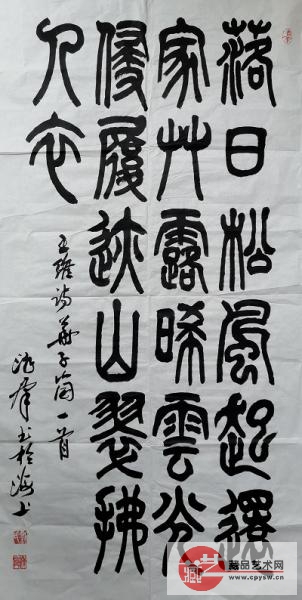 落日松風起還
家艸露晞雲光
侵履迹山翠拂
人衣
王維詩華子崗一首
书於海上
藏品艺术网
www.cpysw.cn